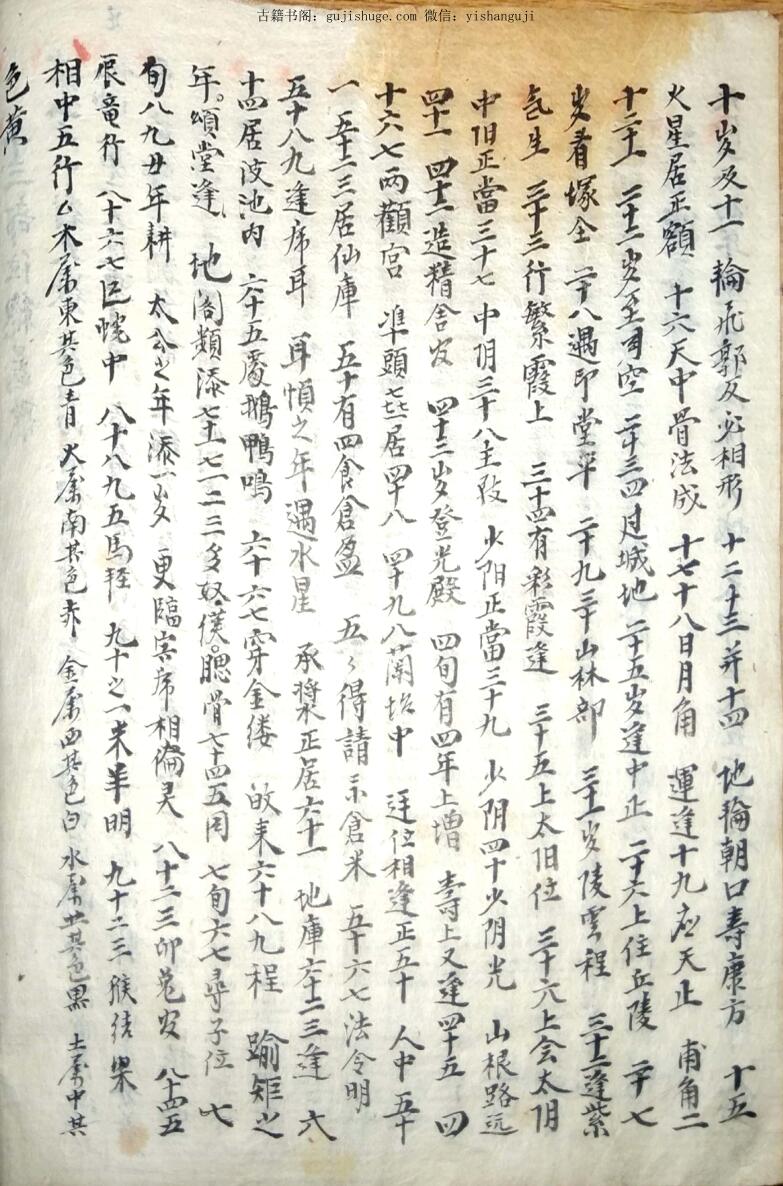 古籍书阁：gujishuge.com 微信：yishanguji
十岁及十一 輪飛郭反必相形 十二十三并十四 地輪朝口壽康方 十五
火星居正額 十六天中骨法成 十七十八日月角 運逢十九应天止 甫角二
十二十一 二十二岁至司空 二十三四边城地 二十五岁逢中正 二十六上住丘陵 二十七
岁看塚仝 二十八遇印堂平 二十九三十山林部 三十一岁陵雲程 三十二逢紫
氣生 三十三行繁霞上 三十四有彩霞逢 三十五上太阳位 三十六上会太阴
中阳正當三十七 中阴三十八主 少阳正當三十九 少阴四十少阴光 山根路远
四十一 四十二造精舍宏 四十三岁登光殿 四旬有四年上增 壽上又逢四十五 四
十六七两顴宫 凖頭喜居四十八 四十九八蘭坮中 廷位相逢正五十 人中五十
一 五十二三居仙庫 五十有四食倉盈 五々得請示倉米 五十六七法令明
五十八九逢席耳 耳愼之年遇水星 承漿正居六十一 地庫六十二三逢 六
十四居波池内 六十五處鹅鴨鳴 六十六七穿金缕 敀耒六十八九程 踰矩之
年。頌堂逢 地阁類添七十一 七一二三多奴僕。腮骨七十四五同 七旬六七尋子位 七
旬八九丑年耕 太公之年添一岁 更臨寅席相倫灵 八十二三卯兔宏 八十四五
辰竜行 八十六七巨蛇中 八十八九五馬程 九十之一未羊明 九十二三猴结果
相中五行 木属東其色青 火属南其色赤 金属西其色白 水属北其色黑 土属中其
色黄